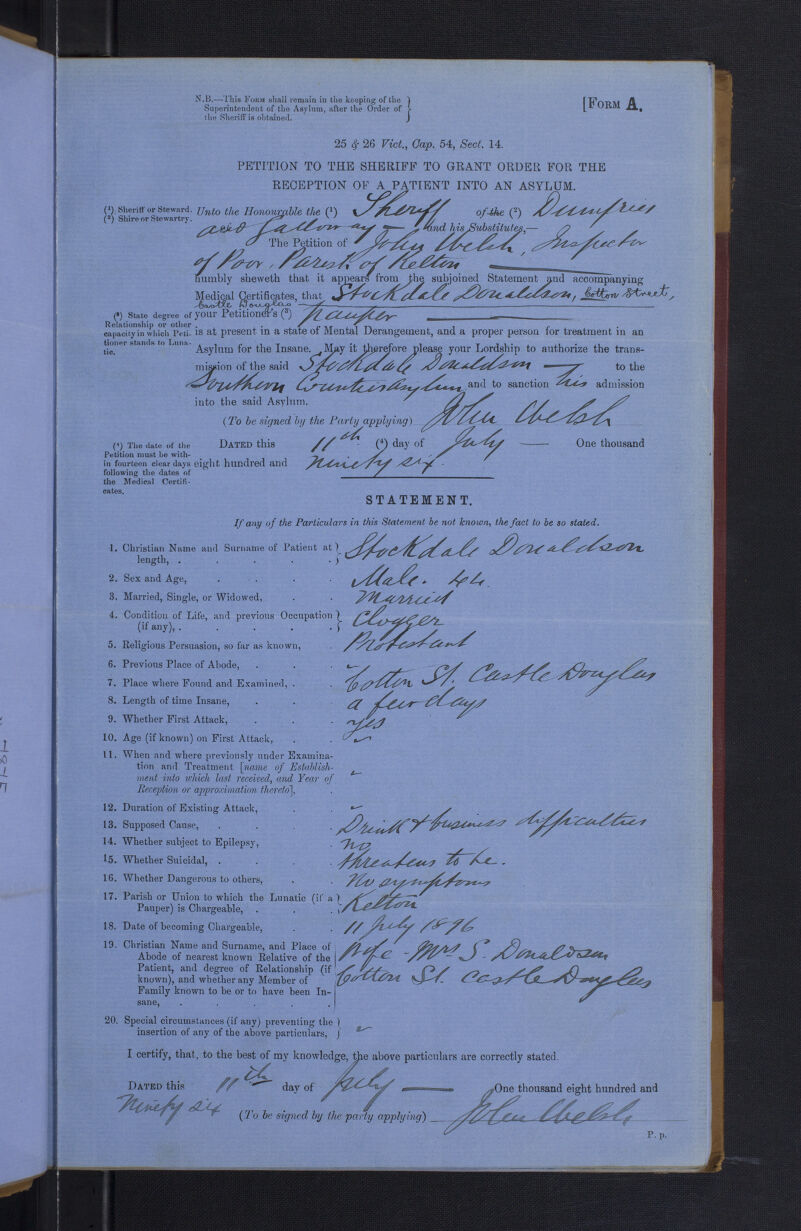 N.B.—This Form shall remain in the keeping of the
Superintendent of the Asylum, after the Order of
the Sheriff is obtained.
[Form A.
25 & 26 Vict., Cap. 54, Sect. 14.
PETITION TO THE SHERIFF TO GRANT ORDER FOR THE
RECEPTION OF A PATIENT INTO AN ASYLUM.
(1) Sheriff or Steward.
(2) Shire or Stewartry.
Unto the Honourable the (1) Sheriff of the (2) Dumfries
and Galloway and his Substitutes,—
The Petition of John Welsh, Inspector
of Poor, Parish of Kelton
humbly sheweth that it appears from the subjoined Statement and accompanying
Medical Certificates, that Stockdale Donaldson, Cotton Street,
Castle Douglas
(3) State degree of
Relationship or other
capacity in which Peti-
tioner stands to Luna-
tic.
your Petitioner's (3) pauper
is at present in a state of Mental Derangement, and a proper person for treatment in an
Asylum for the Insane. May it therefore please your Lordship to authorize the trans-
mission of the said Stockdale Donaldson to the
Southern Counties Asylum and to sanction his admission
into the said Asylum.
(To be signed by the Party applying) John Welsh
(4) The date of the
Petition must be with-
in fourteen clear days
following the dates of
the Medical Certifi-
cates.
Dated this 11th (4) day of July — One thousand
eight hundred and ninety six.
STATEMENT.
If any of the Particulars in this Statement be not known, the fact to be so stated.
1. Christian Name and Surname of Patient at
length, . Stockdale Donaldson
2. Sex and Age, Male. 44.
3. Married, Single, or Widowed, Married
4. Condition of Life, and previous Occupation
(if any), . Clogger
5. Religious Persuasion, so far as known, Protestant
6. Previous Place of Abode, "
7. Place where Found and Examined, . Cotton St. Castle Douglas
8. Length of time Insane, a few days
9. Whether First Attack, yes
10. Age (if known) on First Attack, "
11. When and where previously under Examina-
tion and Treatment [name of Establish-
ment into which last received, and Year of
Reception or approximation thereto], "
12. Duration of Existing Attack, "
13. Supposed Cause, Drink & business difficulties
14. Whether subject to Epilepsy, no
15. Whether Suicidal, . threatens to be.
16. Whether Dangerous to others, No symptoms
17. Parish or Union to which the Lunatic (if a
Pauper) is Chargeable, . Kelton
18. Date of becoming Chargeable, 11 July 1896
19. Christian Name and Surname, and Place of
Abode of nearest known Relative of the
Patient, and degree of Relationship (if
known), and whether any Member of
Family known to be or to have been In-
sane, Wife - Mrs S. Donaldson
Cotton St. Castle Douglas
20. Special circumstances (if any) preventing the
insertion of any of the above particulars, "
I certify, that, to the best of my knowledge, the above particulars are correctly stated.
Dated this 11th day of July — One thousand eight hundred and
Ninety six (To be signed by the party applying) John Welsh
P. p.